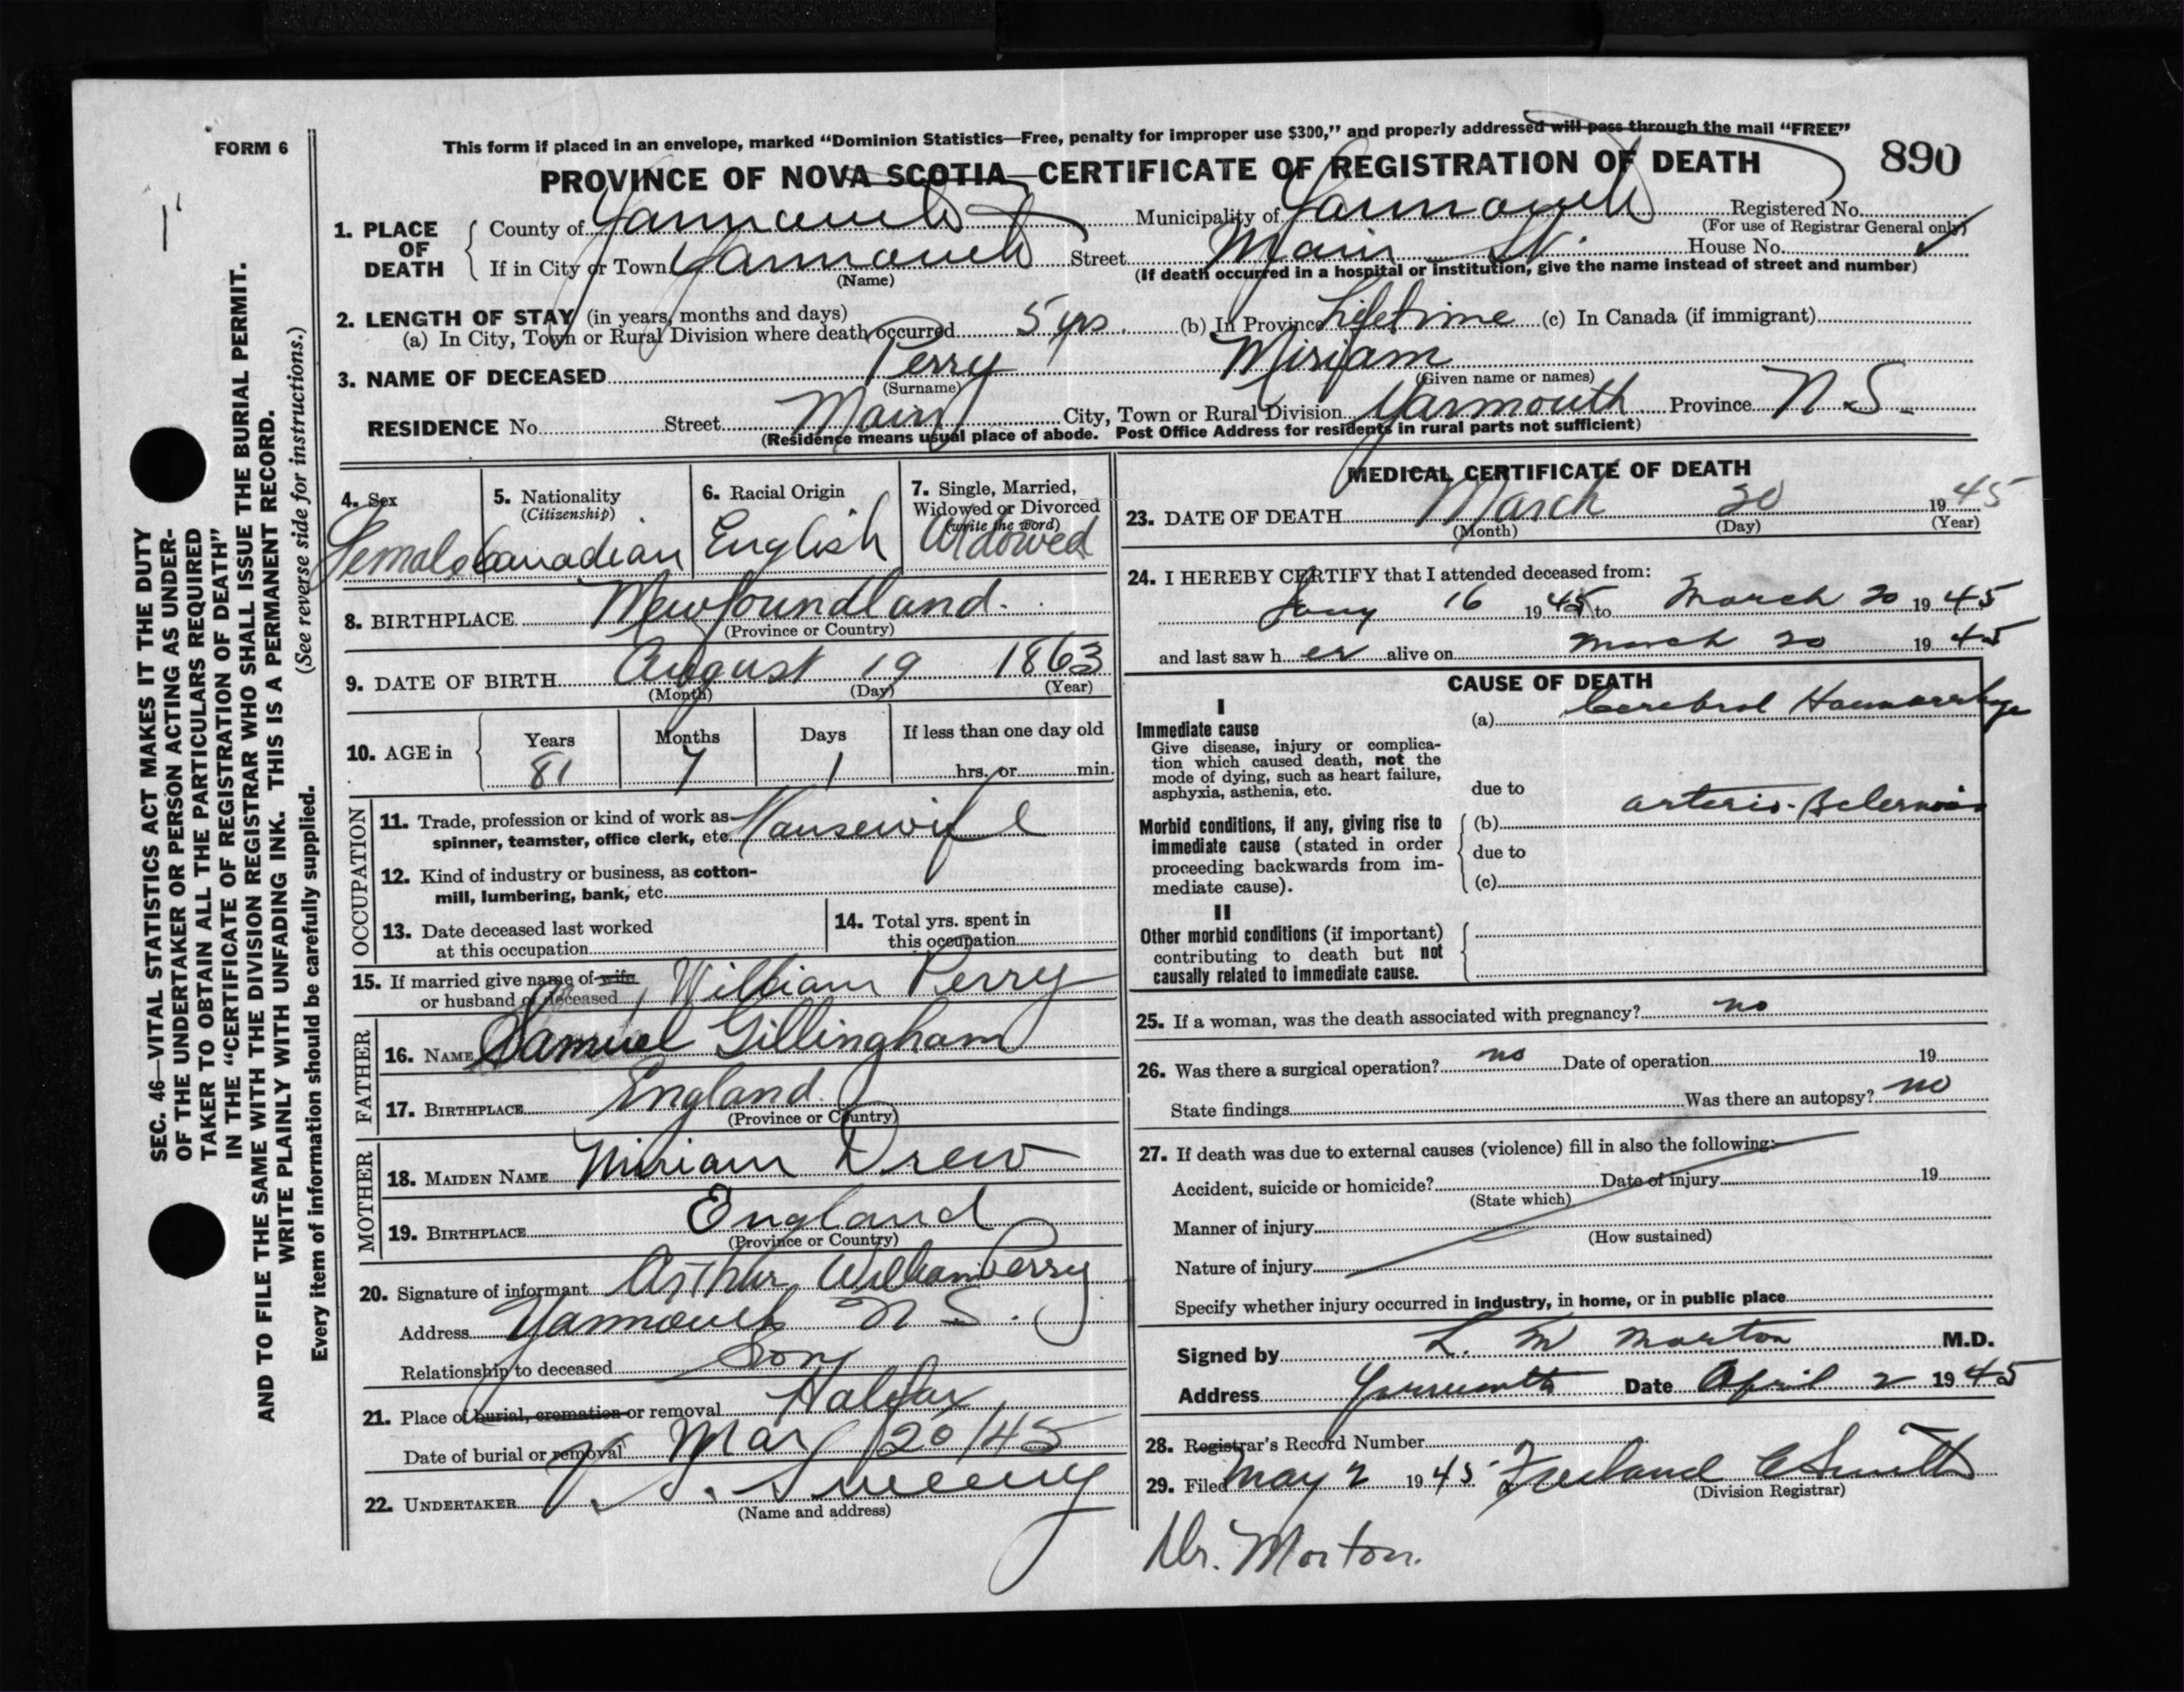 FORM 6
This form if placed in an envelope, marked “Dominion Statistics—Free, penalty for improper use $300,” and properly addressed will pass through the mail “FREE”
PROVINCE OF NOVA SCOTIA—CERTIFICATE OF REGISTRATION OF DEATH
890
1. PLACE OF DEATH
County of Yarmouth Municipality of Yarmouth Registered No.
(For use of Registrar General only)
If in City or Town Yarmouth Street Main St. House No.
(Name) (If death occurred in a hospital or institution, give the name instead of street and number)
2. LENGTH OF STAY (in years, months and days)
(a) In City, Town or Rural Division where death occurred 5 yrs. (b) In Province Lifetime (c) In Canada (if immigrant)
3. NAME OF DECEASED Perry Miriam
(Surname) (Given name or names)
RESIDENCE No. Street Main City, Town or Rural Division Yarmouth Province N.S.
(Residence means usual place of abode. Post Office Address for residents in rural parts not sufficient)
4. Sex
Female
5. Nationality
(Citizenship)
Canadian
6. Racial Origin
English
7. Single, Married,
Widowed or Divorced
(write the word)
Widowed
8. BIRTHPLACE Newfoundland.
(Province or Country)
9. DATE OF BIRTH August 19 1863
(Month) (Day) (Year)
10. AGE in
Years Months Days If less than one day old
81 7 1 hrs. or min.
OCCUPATION
11. Trade, profession or kind of work as
spinner, teamster, office clerk, etc. Housewife
12. Kind of industry or business, as cotton-
mill, lumbering, bank, etc.
13. Date deceased last worked
at this occupation
14. Total yrs. spent in
this occupation
15. If married give name of wife
or husband of deceased William Perry
FATHER
16. NAME Samuel Gillingham
17. BIRTHPLACE England
(Province or Country)
MOTHER
18. MAIDEN NAME Miriam Drew
19. BIRTHPLACE England
(Province or Country)
20. Signature of informant Arthur William Perry
Address Yarmouth N.S.
Relationship to deceased Son
21. Place of burial, cremation or removal Halifax
Date of burial or removal Mar 20/45
22. UNDERTAKER V. S. Sweeny
(Name and address)
MEDICAL CERTIFICATE OF DEATH
23. DATE OF DEATH March 20 1945
(Month) (Day) (Year)
24. I HEREBY CERTIFY that I attended deceased from:
Jany 16 1945 to March 20 1945
and last saw her alive on March 20 1945
CAUSE OF DEATH
I
Immediate cause
Give disease, injury or complica-
tion which caused death, not the
mode of dying, such as heart failure,
asphyxia, asthenia, etc.
(a) Cerebral Haemorrhage
due to
Morbid conditions, if any, giving rise to
immediate cause (stated in order
proceeding backwards from im-
mediate cause).
(b) arterio-Sclerosis
due to
(c)
II
Other morbid conditions (if important)
contributing to death but not
causally related to immediate cause.
25. If a woman, was the death associated with pregnancy? no
26. Was there a surgical operation? no Date of operation 19
State findings Was there an autopsy? no
27. If death was due to external causes (violence) fill in also the following:
Accident, suicide or homicide? Date of injury 19
(State which)
Manner of injury
(How sustained)
Nature of injury
Specify whether injury occurred in industry, in home, or in public place
Signed by L. M Morton M.D.
Address Yarmouth Date April 2 1945
28. Registrar's Record Number
29. Filed May 2 1945 Freeland C Smith
(Division Registrar)
Dr. Morton.
SEC. 46—VITAL STATISTICS ACT MAKES IT THE DUTY
OF THE UNDERTAKER OR PERSON ACTING AS UNDER-
TAKER TO OBTAIN ALL THE PARTICULARS REQUIRED
IN THE “CERTIFICATE OF REGISTRATION OF DEATH”
AND TO FILE THE SAME WITH THE DIVISION REGISTRAR WHO SHALL ISSUE THE BURIAL PERMIT.
WRITE PLAINLY WITH UNFADING INK. THIS IS A PERMANENT RECORD.
Every item of information should be carefully supplied. (See reverse side for instructions.)